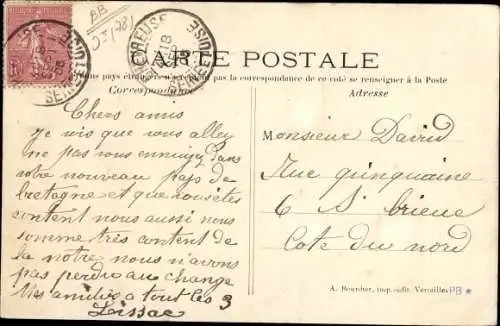 BB
CHEVREUSE
SEINE-ET-OISE
CARTE POSTALE
pays étrangers n'acceptent pas la correspondance de ce côté se renseigner à la Poste
Correspondance
Adresse
Chers amis
Je vis que vous alley
ne pas vous ennuier dans
votre nouveau pays de
bretagne et que vous êtes
content nous aussi nous
somme très content de
la notre nous n'avons
pas perdu au change
Mes amitiés a tout les 3
Monsieur David
Rue quinquaine
6 St brieuc
Cote du nord
A. Bourdier, imp.-édit. Versailles
PB